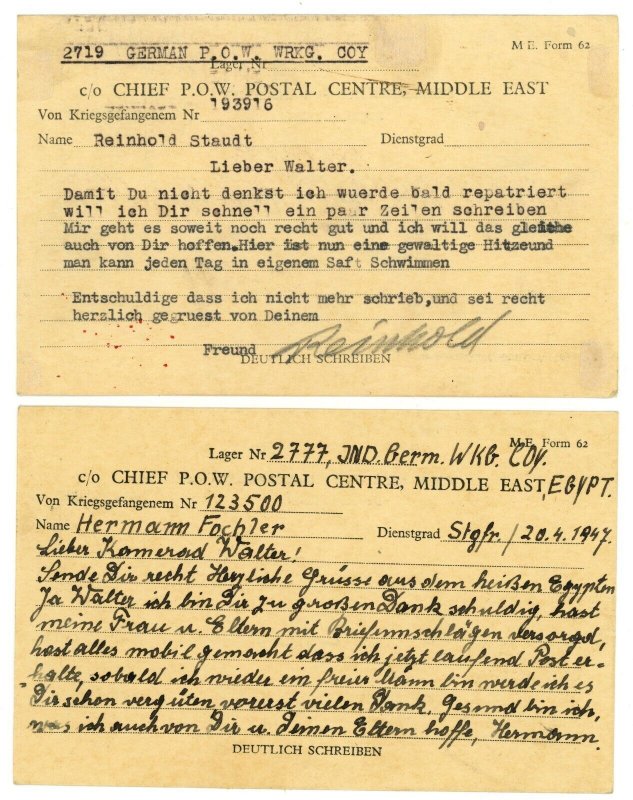 2719 GERMAN P.O.W. WRKG. COY
M E. Form 62
Lager Nr
c/o CHIEF P.O.W. POSTAL CENTRE, MIDDLE EAST
Von Kriegsgefangenem Nr 193916
Name Reinhold Staudt Dienstgrad
Lieber Walter.
Damit Du nicht denkst ich wuerde bald repatriert
will ich Dir schnell ein paar Zeilen schreiben
Mir geht es soweit noch recht gut und ich will das
auch von Dir hoffen.Hier ist nun eine gewaltige Hitzeund
man kann jeden Tag in eigenem Saft Schwimmen
Entschuldige dass ich nicht mehr schrieb,und sei recht
herzlich gegruest von Deinem
Freund Reinhold
DEUTLICH SCHREIBEN
M.E. Form 62
Lager Nr 2777, IND. Germ. WKG. COY.
c/o CHIEF P.O.W. POSTAL CENTRE, MIDDLE EAST, EGYPT.
Von Kriegsgefangenem Nr 123500
Name Hermann Fochler Dienstgrad Stgfr. / 20.4.1947.
Lieber Kamerad Walter!
Sende Dir recht Herzliche Grüsse aus dem heißen Egypten
Ja Walter ich bin Dir zu großen Dank schuldig, hast
meine Frau u. Eltern mit Briefumschlägen versorgd,
hast alles mobil gemacht dass ich jetzt laufend Post er-
halte, sobald ich wieder ein freier Mann bin werde ich es
Dir schon vergüten vorerst vielen Dank. Gesund bin ich,
was ich auch von Dir u. Deinen Eltern hoffe, Hermann.
DEUTLICH SCHREIBEN